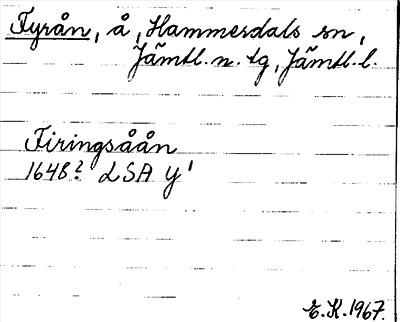 Fyrån, å, Hammerdals sn,
Jämtl. n. tg, Jämtl. l.
Firingsåån
1648? LSA Y¹
E. K. 1967.